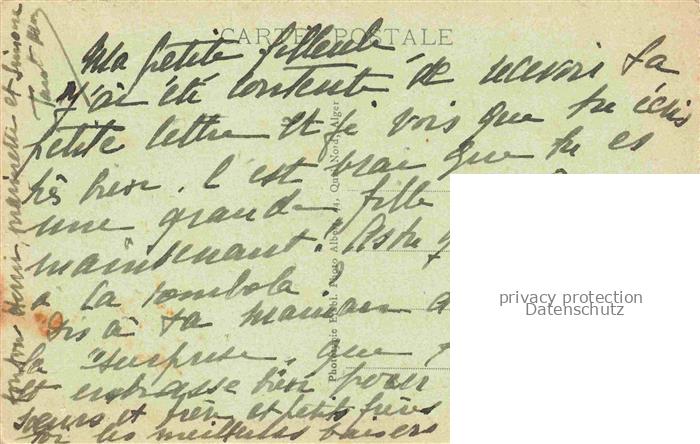 CARTE POSTALE
Ma petite filleule
J'ai été contente de recevoir ta
petite lettre et je vois que tu écris
très bien. C'est vrai que tu es
une grande fille
maintenant. Astu
à la tombola
Dis à ta maman
la surprise, que
et embrasse bien pour
sœurs et frère et petits frères
les meilleurs baisers
tonton Henri, marinette et Simone
Photo Albert
Quai Nord, Alger
privacy protection
Datenschutz